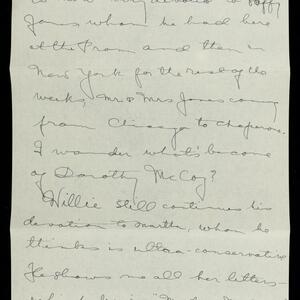 to
Jones whom he had here
at the Prom and then in
New York for the rest of the
week, Mr & Mrs Jones coming
from Chicago to chaperone.
I wonder what's become
of Dorothy McCoy?
Willie still continues his
devotion to Martha, whom he
thinks is ultra-conservative.
He shows me all her letters-